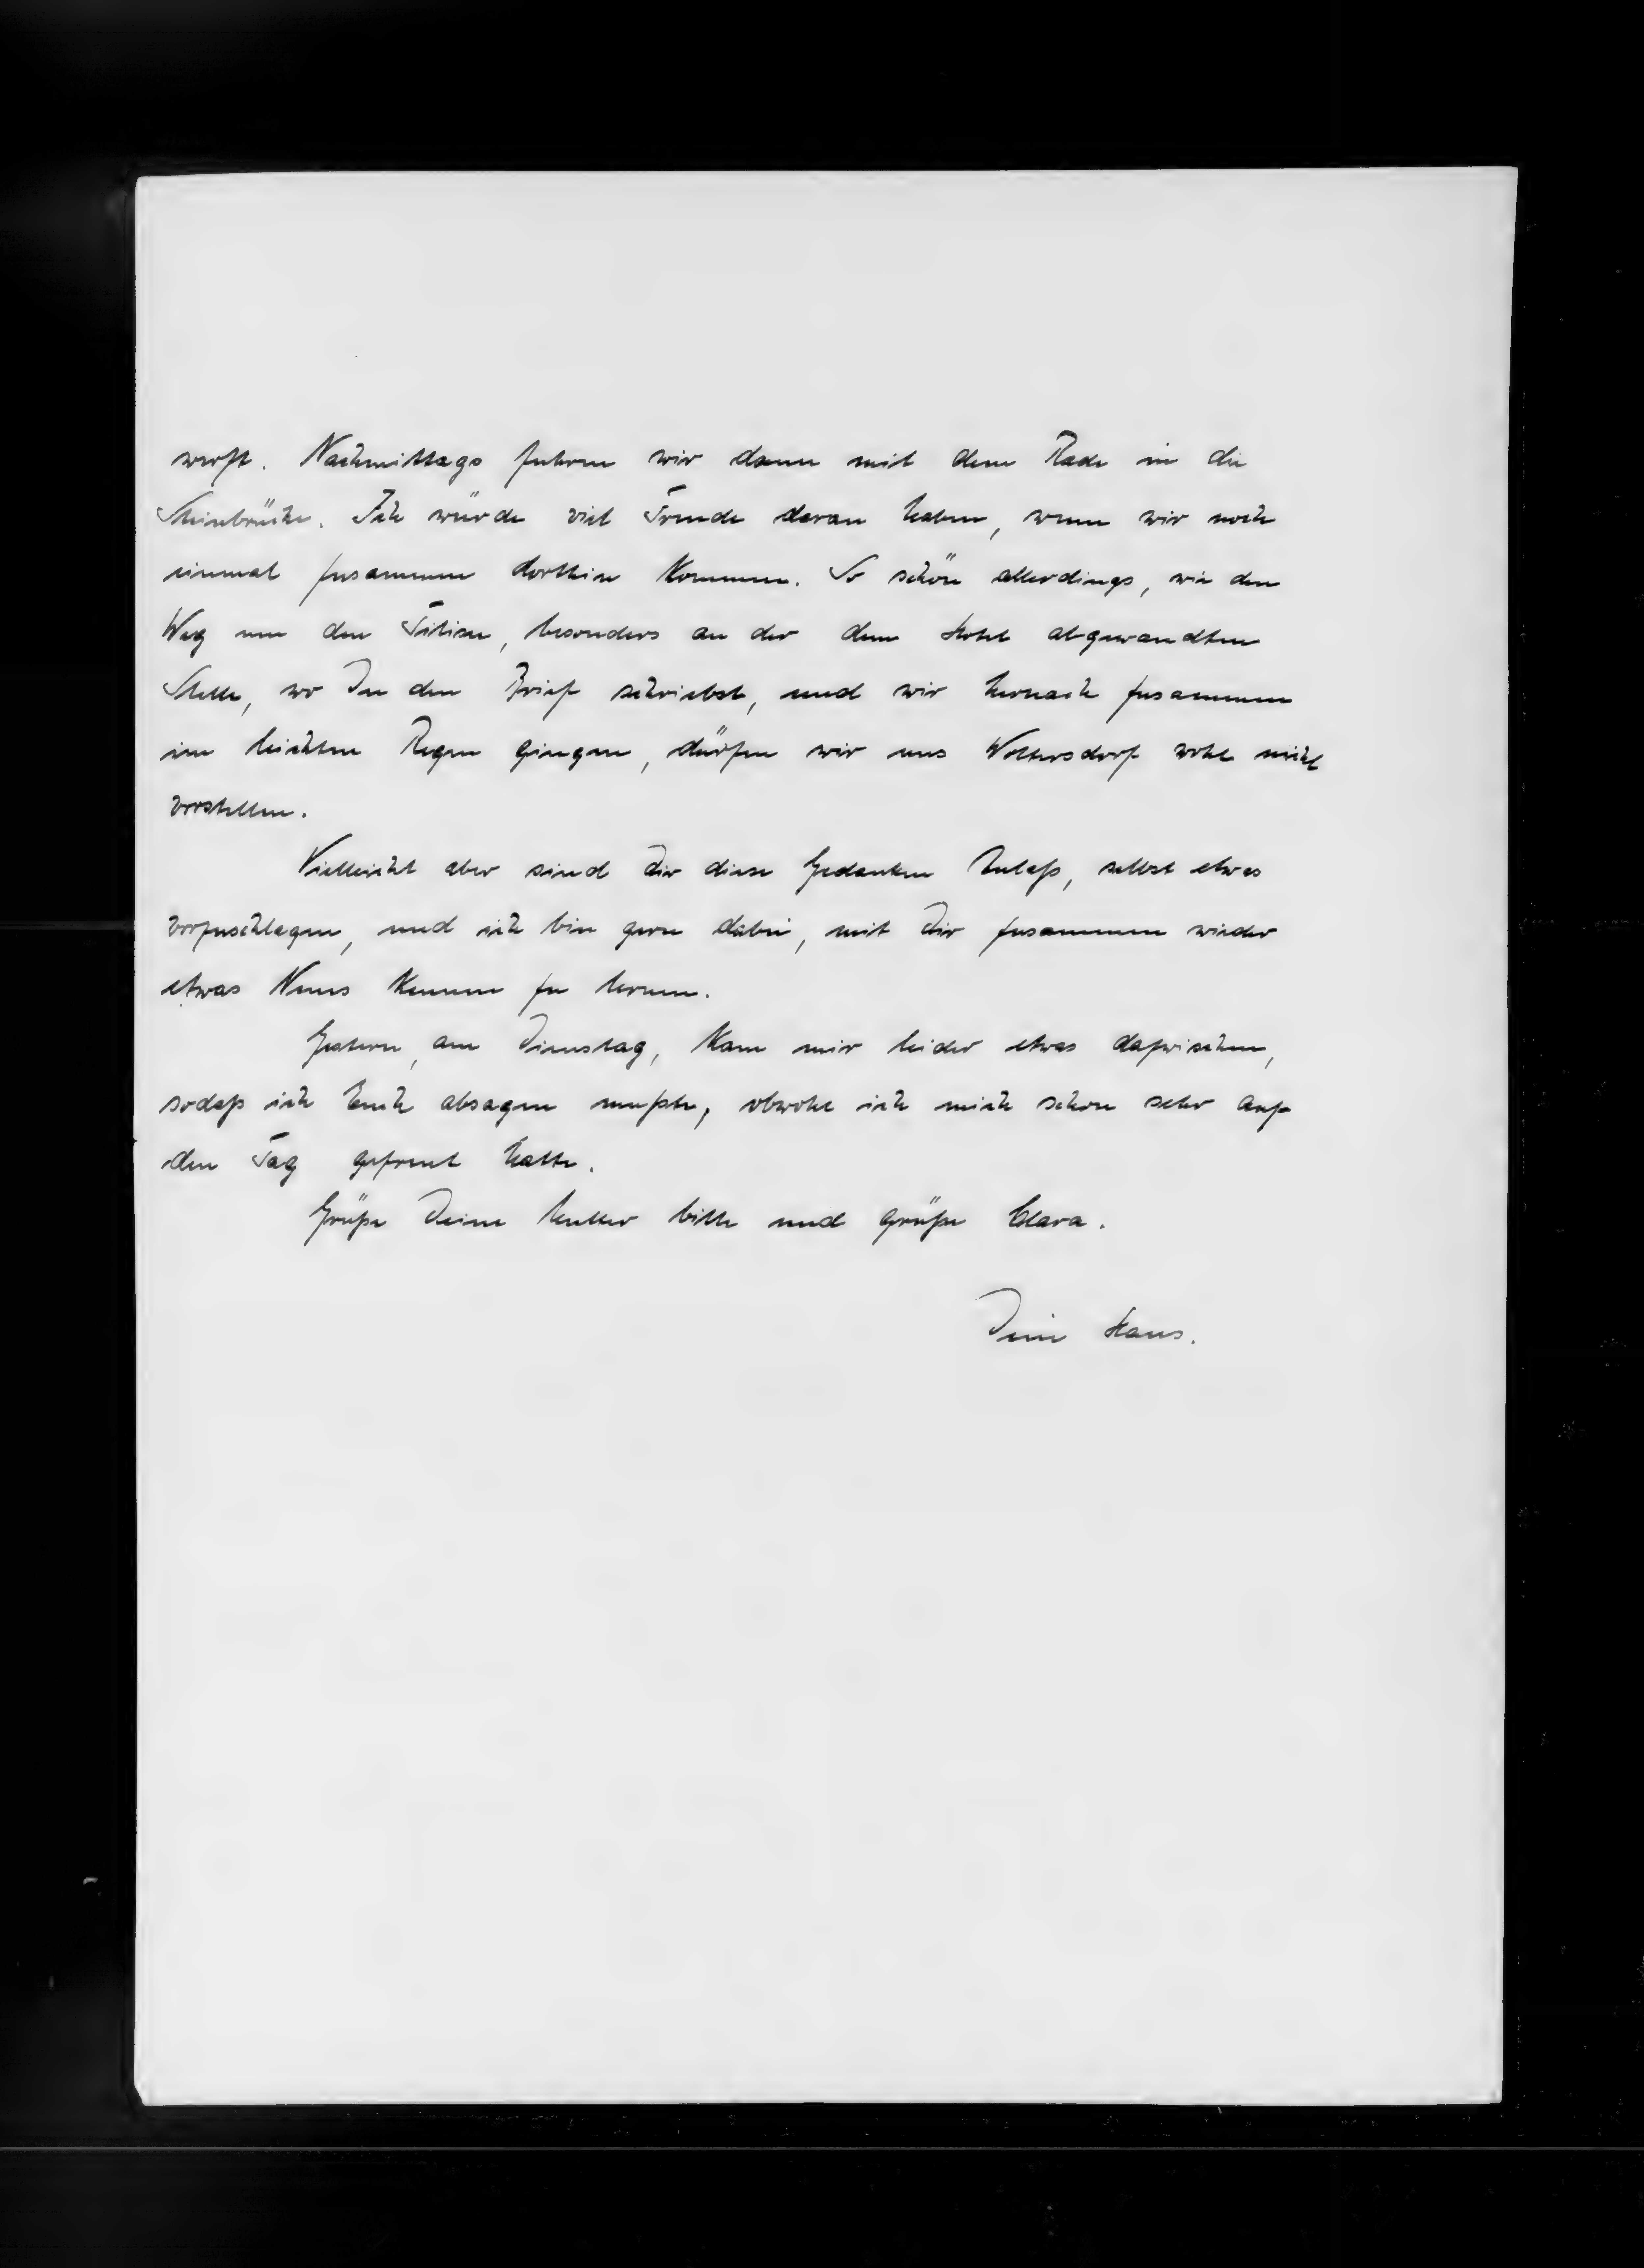 werft. Nachmittags fuhren wir dann mit dem Rade in die
Steinbrüche. Ich würde viel Freude daran haben, wenn wir noch
einmal zusammen dorthin kommen. So schön allerdings, wie den
Weg um den Titisee, besonders an der dem Hotel abgewandten
Stelle, wo Du den Brief schriebst, und wir hernach zusammen
im leichten Regen gingen, dürfen wir uns Woltersdorf wohl nicht
vorstellen.
Vielleicht aber sind Dir diese Gedanken Anlaß, selbst etwas
vorzuschlagen, und ich bin gern dabei, mit Dir zusammen wieder
etwas Neues kennen zu lernen.
Gestern, am Dienstag, kam mir leider etwas dazwischen,
sodaß ich Euch absagen mußte, obwohl ich mich schon sehr auf
den Tag gefreut hatte.
Grüße Deine Mutter bitte und grüße Clara.
Dein Hans.